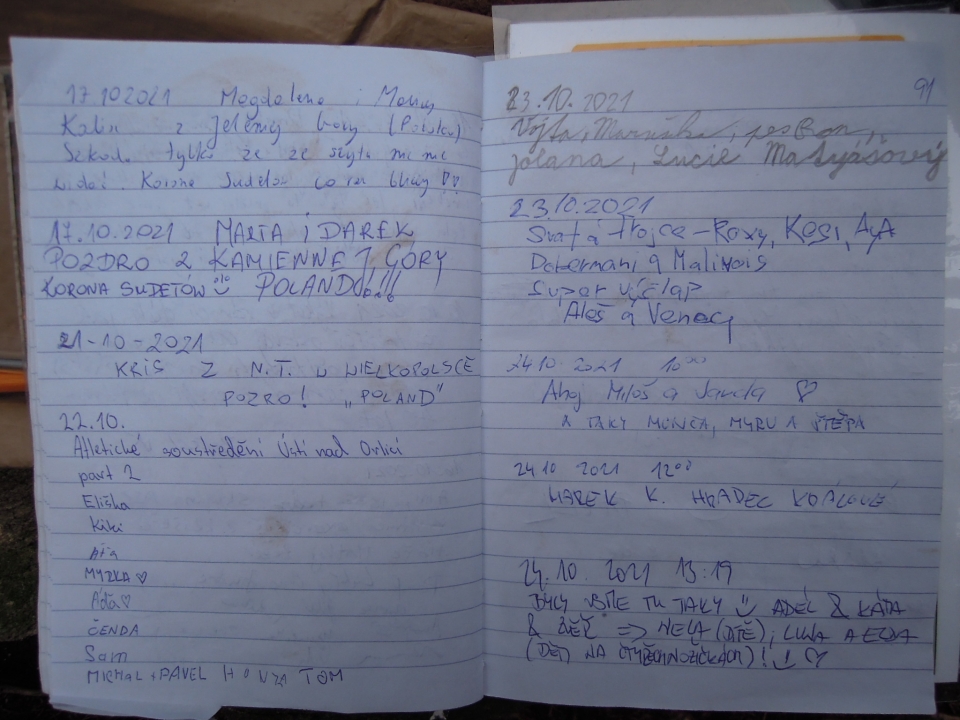 17.10.2021 Magdalena i
Kalin z Jeleniej Góry (Polska)
Szkoda tylko że ze szytu nic nie
widać. Korona Sudetów
17.10.2021 MARTA i DAREK
POZDRO Z KAMIENNEJ GÓRY
KORONA SUDETÓW POLAND!!!
21-10-2021
KRIS Z N.T. W WIELKOPOLSCE
POZRO! „POLAND"
22.10.
Atletické soustředění Ústí nad Orlicí
part 2
Eliška
Kiki
MYZKA ♡
Áďa ♡
ČENDA
Sam
MICHAL + PAVEL TOM
91
23.10.2021
Vojta, Maruška,
Jolana, Lucie Matyásovi
23.10.2021
Svatá trojce – Roxy, Kessi, AyA
Dobermani a Malinois
Super výšlap
Aleš a
24.10.2021 10⁰⁰
Ahoj Miloš a Jarula ♡
A TAKY MÍRU A ŠTĚPA
24.10 2021 12⁰⁰
MAREK K. HRADEC KRÁLOVÉ
24.10.2021 13:19
BYLY JSME TU TAKY ADÉL & KÁŤA
& => NELA (DÍTĚ), LUNA A
(DĚTI NA ČTYŘECH NOŽIČKÁCH)! ♡